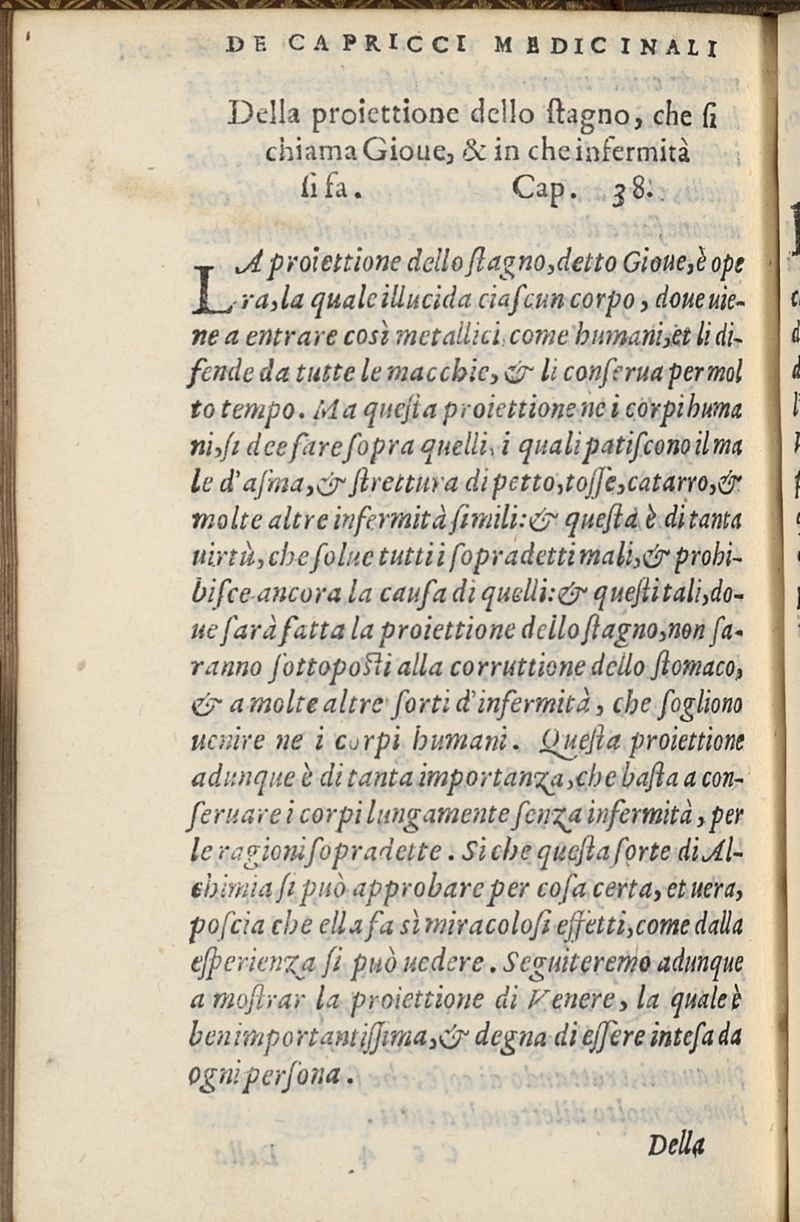 DE CAPRICCI MEDICINALI
Della proiettione dello ſtagno, che ſi
chiama Gioue, & in che infermità
ſi fa. Cap. 38.
LA proiettione dello ſtagno, detto Gioue, è ope
ra, la quale illucida ciaſcun corpo, doue uie-
ne a entrare così metallici come humani, et li di-
fende da tutte le macchie, & li conſerua per mol
to tempo. Ma queſta proiettione ne i corpi huma
ni, ſi dee fare ſopra quelli, i quali patiſcono il ma
le d'aſma, & ſtrettura di petto, toſſe, catarro, &
molte altre infermità ſimili: & queſta è di tanta
uirtù, che ſolue tutti i ſopradetti mali, & prohi-
biſce ancora la cauſa di quelli: & queſti tali, do-
ue ſarà fatta la proiettione dello ſtagno, non ſa-
ranno ſottopoſti alla corruttione dello ſtomaco,
& a molte altre ſorti d'infermità, che ſogliono
uenire ne i corpi humani. Queſta proiettione
adunque è di tanta importanza, che baſta a con-
ſeruare i corpi lungamente ſenza infermità, per
le ragioni ſopradette. Si che queſta ſorte di Al-
chimia ſi può approbare per coſa certa, et uera,
poſcia che ella fa sì miracoloſi effetti, come dalla
eſperienza ſi può uedere. Seguiteremo adunque
a moſtrar la proiettione di Venere, la quale è
ben importantiſſima, & degna di eſſere inteſa da
ogni perſona.
Della